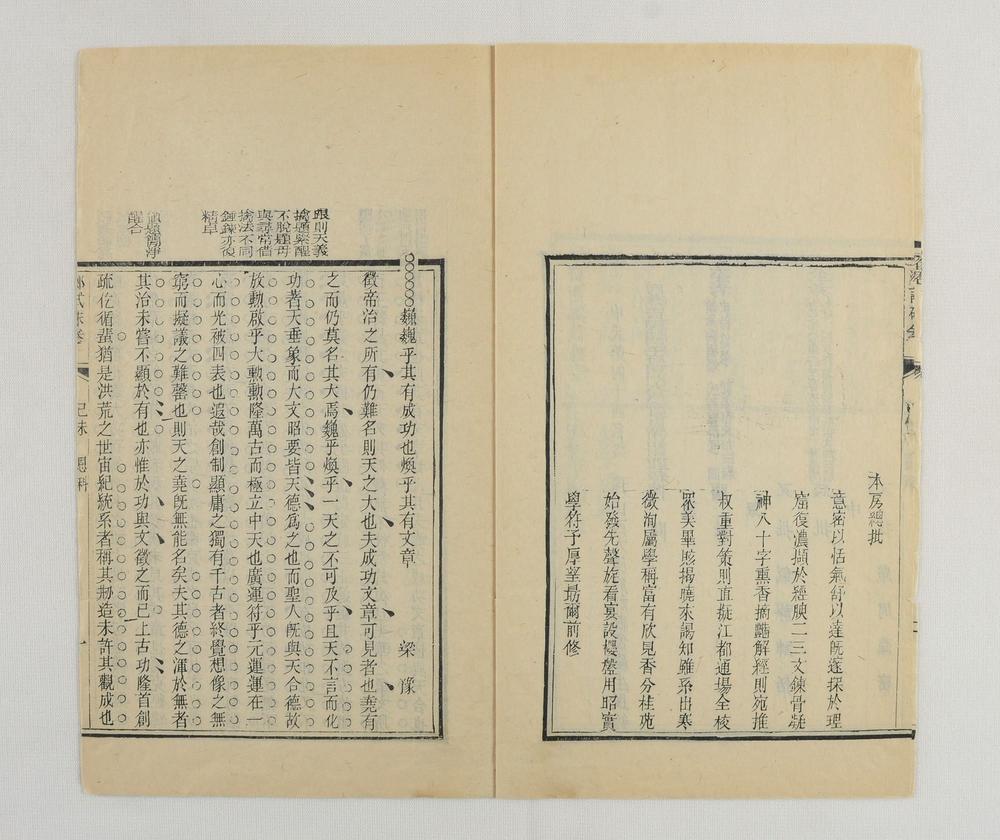 本房總批
意密以恬氣舒以達既邃探於理
窟復濃擷於經腴二三文鍊骨凝
神八十字熏香摘豔解經則宛推
权重對策則直擬江都通場全校
眾美畢賅揭曉來謁知雖系出寒
微洵屬學稱富有欣見香分桂苑
始發先聲旋看宴設櫻筵用昭實
學符予厚望勗爾前修
巍巍乎其有成功也煥乎其有文章
梁豫
徵帝治之所有仍難名則天之大也夫成功文章可見者也堯有
之而仍莫名其大焉巍乎煥乎一天之不可及乎且天不言而化
功著天垂象而大文昭要皆天德為之也而聖人既與天合德故
放勳啟乎大勳勳隆萬古而極立中天也廣運符乎元運運在一
心而光被四表也遐哉創制顯庸之獨有千古者終覺想像之無
窮而擬議之難罄也則天之堯既無能名矣夫其德之渾於無者
其治未嘗不顯於有也亦惟於功與文徵之而已上古功隆首創
疏仡循蜚猶是洪荒之世宙紀統系者稱其刱造未許其觀成也
跟則天義
擒題緊醒
不脫題母
與尋常借
擒法不同
錘鍊亦復
精卓
醒合
己未 恩科